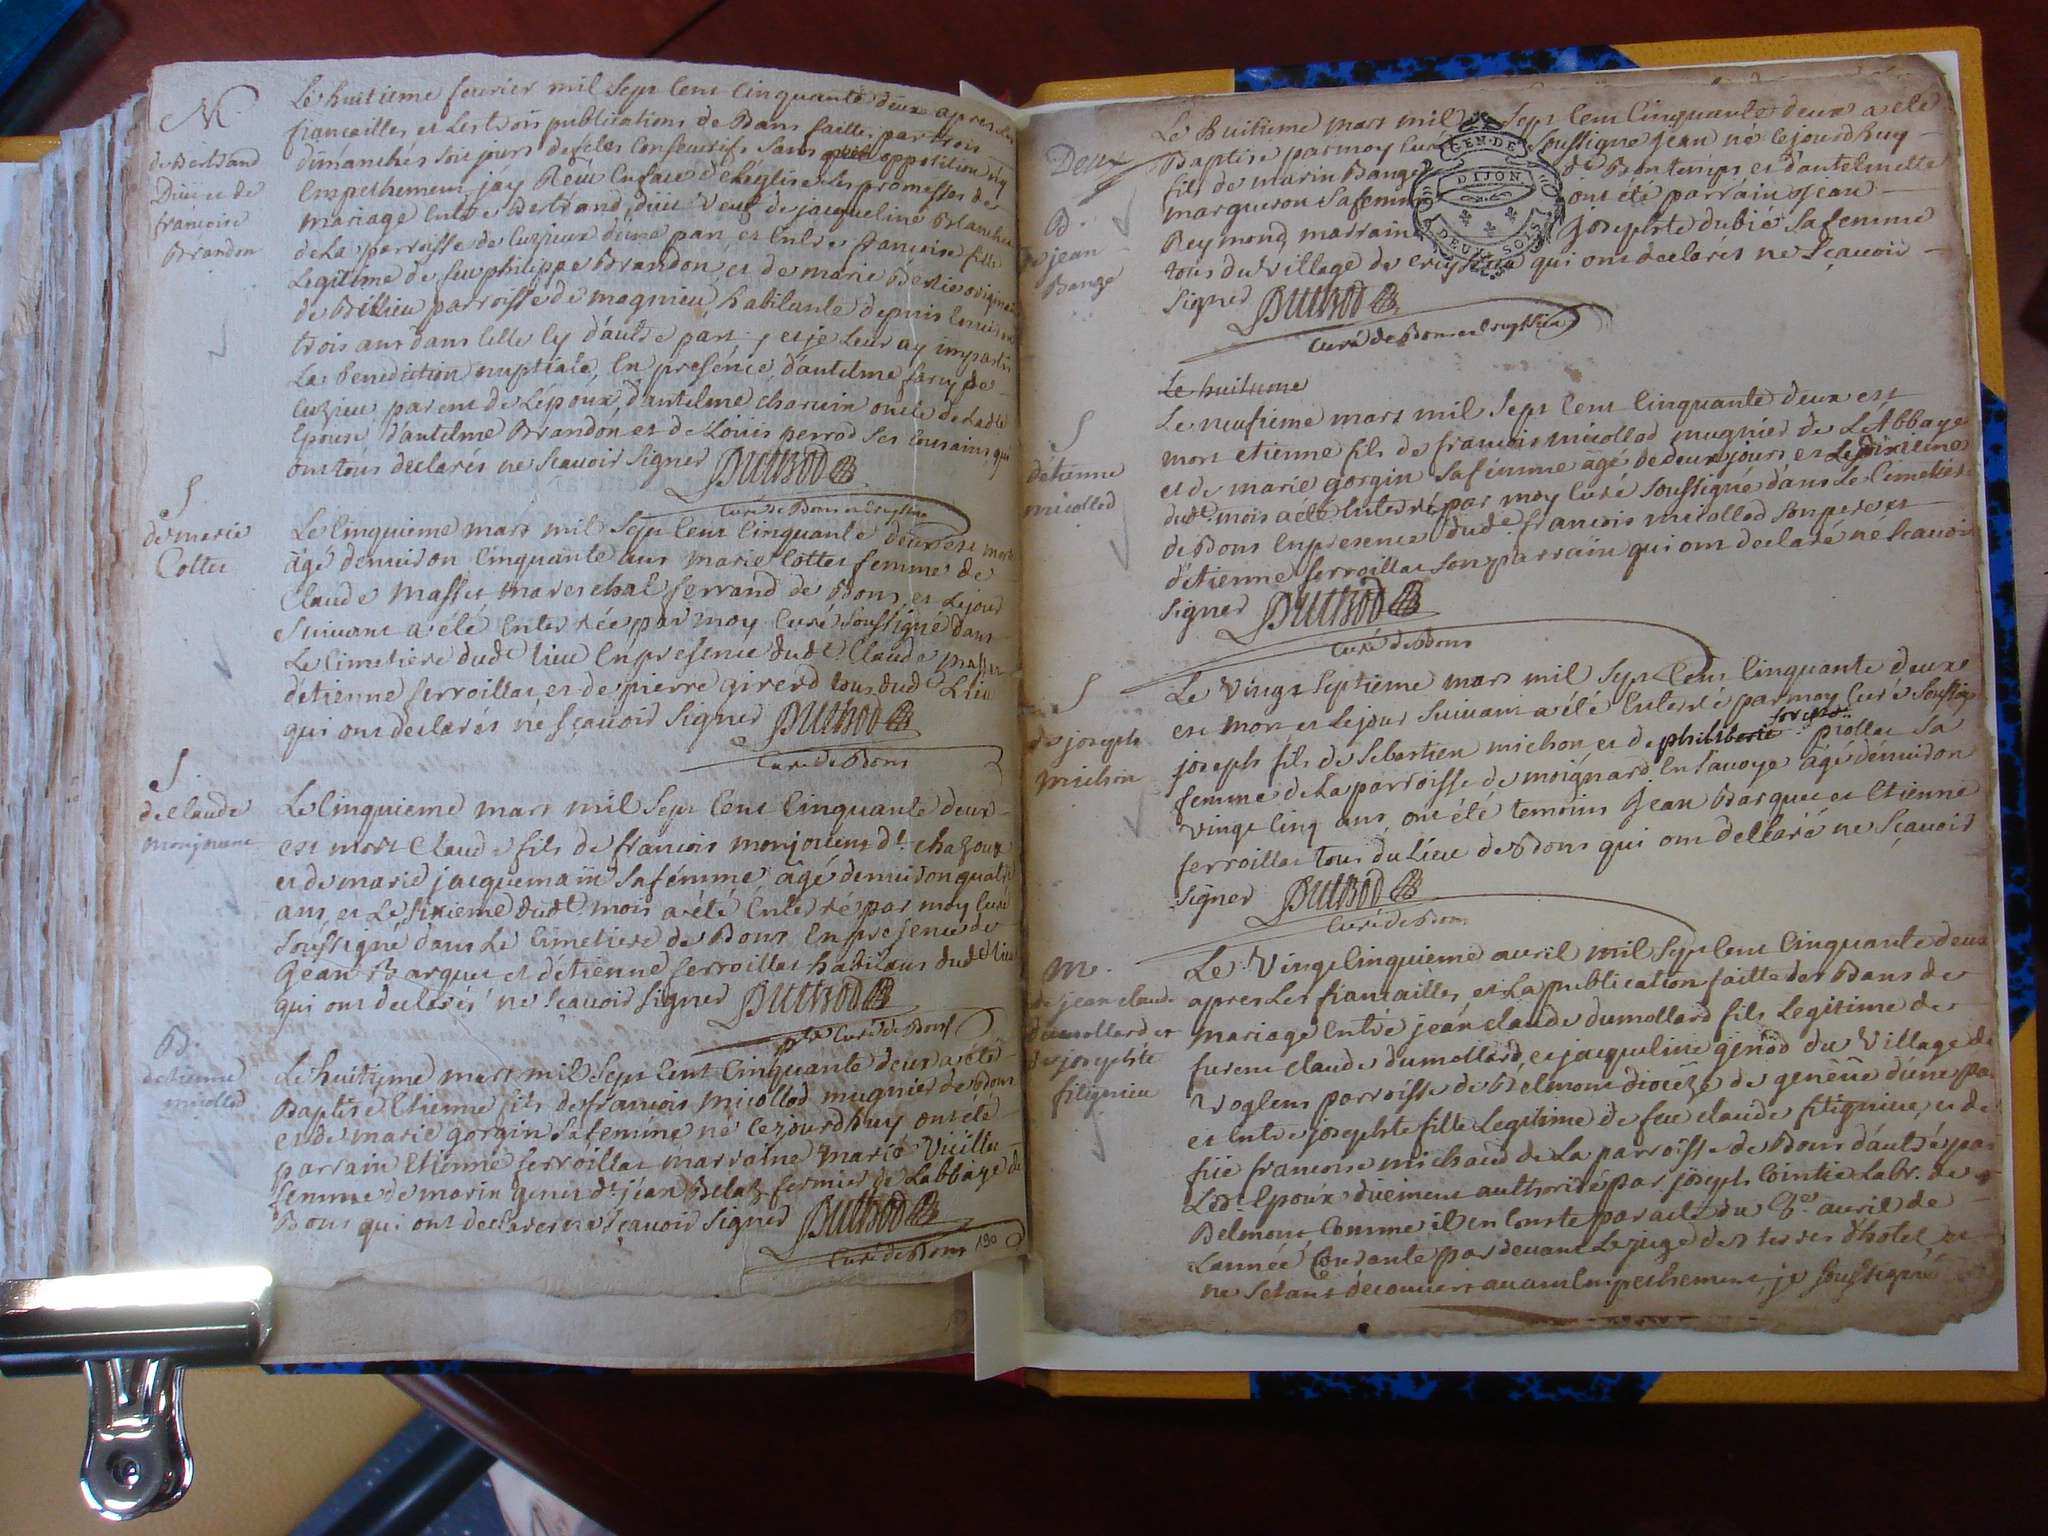 M.
de Bertrand
Duu et de
francoise
Brandon
Le huitieme feurier mil sept cent cinquante deux apres les
fiancailles et les trois publications de Bans faittes par trois
dimanches ou jours defetes consecutifs sans opposition ny
empeschement, j'ay Reçu en face de l'eglise les promesses de
mariage entre Bertrand Duu veuf de jacqueline Blanchin
de la parroisse de cuzieux d'une part, et entre francoise fille
Legitime de feu philippe Brandon et de marie Bertie originaire
de Billieu parroisse de magnieu, habitante depuis environ
trois ans dans celle cy d'autre part, et je leur ay imparti
La benediction nuptiale, en presence d'antelme fary de
cuzieu parent de L'epoux, d'antelme charvin oncle de Ladte
Epouse, d'antelme Brandon et de Louis perrod ses cousains, qui
ont tous declarés ne scavoir signer Duthod
curé de Bons et Cryssieu
S
de marie
Cottet
Le cinquieme mars mil sept cent cinquante deux est morte
âgé d'environ cinquante ans marie Cottet femme de
Claude Masset mareschal ferrand de Bons, et Le jour
suivant a été enterrée par moy curé soussigné dans
Le cimetiere dudt lieu en presence dudt Claude Masset
d'etienne ferroillat et de pierre girerd tous dudt Lieu
qui ont declarés ne sçavoir signer Duthod
curé de Bons
S
de claude
monjouent
Le cinquieme mars mil sept cent cinquante deux
est mort claude fils de francois monjouent dt chazoux
et de marie jacquemain sa femme âgé d'environ quatre
ans et Le sixieme dudt mois a été enterré par moy curé
soussigné dans Le cimetiere de Bons en presence de
Jean Barquet et d'etienne ferroillat habitans dudt lieu
qui ont declarés ne sçavoir signer Duthod
curé de Bons
B.
d'etienne
micollod
Le huitieme mars mil sept cent cinquante deux a été
Baptisé Etienne fils de francois micollod mugnier de Bons
et de marie gorgin sa femme né cejourdhuy ont été
parrain Etienne ferroillat marraine marie
femme de marin dt jean fermier de Labbaye de
Bons qui ont declarer ne sçavoir signer Duthod
curé de Bons
190
Deux
B.
de jean
Bange
Le huitieme mars mil sept cent cinquante deux a été
Baptisé par moy curé soussigné jean né cejourdhuy
fils de marin Bange dt Bontemps et d'antelmette
margueron sa femme ont été parrain jean
Reymond marraine josephte dubié sa femme
tous du village de cryssieu qui ont declarés ne sçavoir
signer Duthod
curé de Bons et Cryssieu
GEN. DE
DIJON
DEUX SOLS
S
d'etienne
micollod
Le huitieme
Le neufieme mars mil sept cent cinquante deux est
mort etienne fils de francois micollod mugnier de L'Abbaye
et de marie gorgin sa femme âgé de deux jours et Le dixieme
dudt mois a été enterré par moy curé soussigné dans Le cimetiere
de Bons en presence dudt francois micollod son pere et
d'etienne ferroillat son parrain qui ont declaré ne scavoir
signer Duthod
curé de Bons
S
de joseph
michon
Le vingt septieme mars mil sept cent cinquante deux
est mort et Le jour suivant a été enterré par moy curé soussigné
joseph fils de sebastien michon et de philiberte piollat sa
femme de La parroisse de moignard en savoye âgé d'environ
vingt cinq ans, ont été temoins Jean Barquet et Etienne
ferroillat tous du Lieu de Bons qui ont declaré ne sçavoir
signer Duthod
curé de Bons
M.
de jean claude
dumollard et
de josephte
fitignieu
Le Vingt cinquieme avril mil sept cent cinquante deux
apres Les fiancailles, et La publication faitte des Bans de
mariage entre jean claude dumollard fils Legitime de
furent claude dumollard et jacqueline du village de
Voglens parroisse de Belmont diocèze de genève d'une part
et entre josephte fille Legitime de feu claude fitignieu et de
francoise michaud de La parroisse de Bons d'autre part
Ledt Epoux duement authorisé par joseph Cointie Labr. de
Belmont comme il en conste par acte du 8e avril de
L'année courante par devant Le juge des terres d'hotel et
ne setant decouvert aucun empeschement, je soussigné